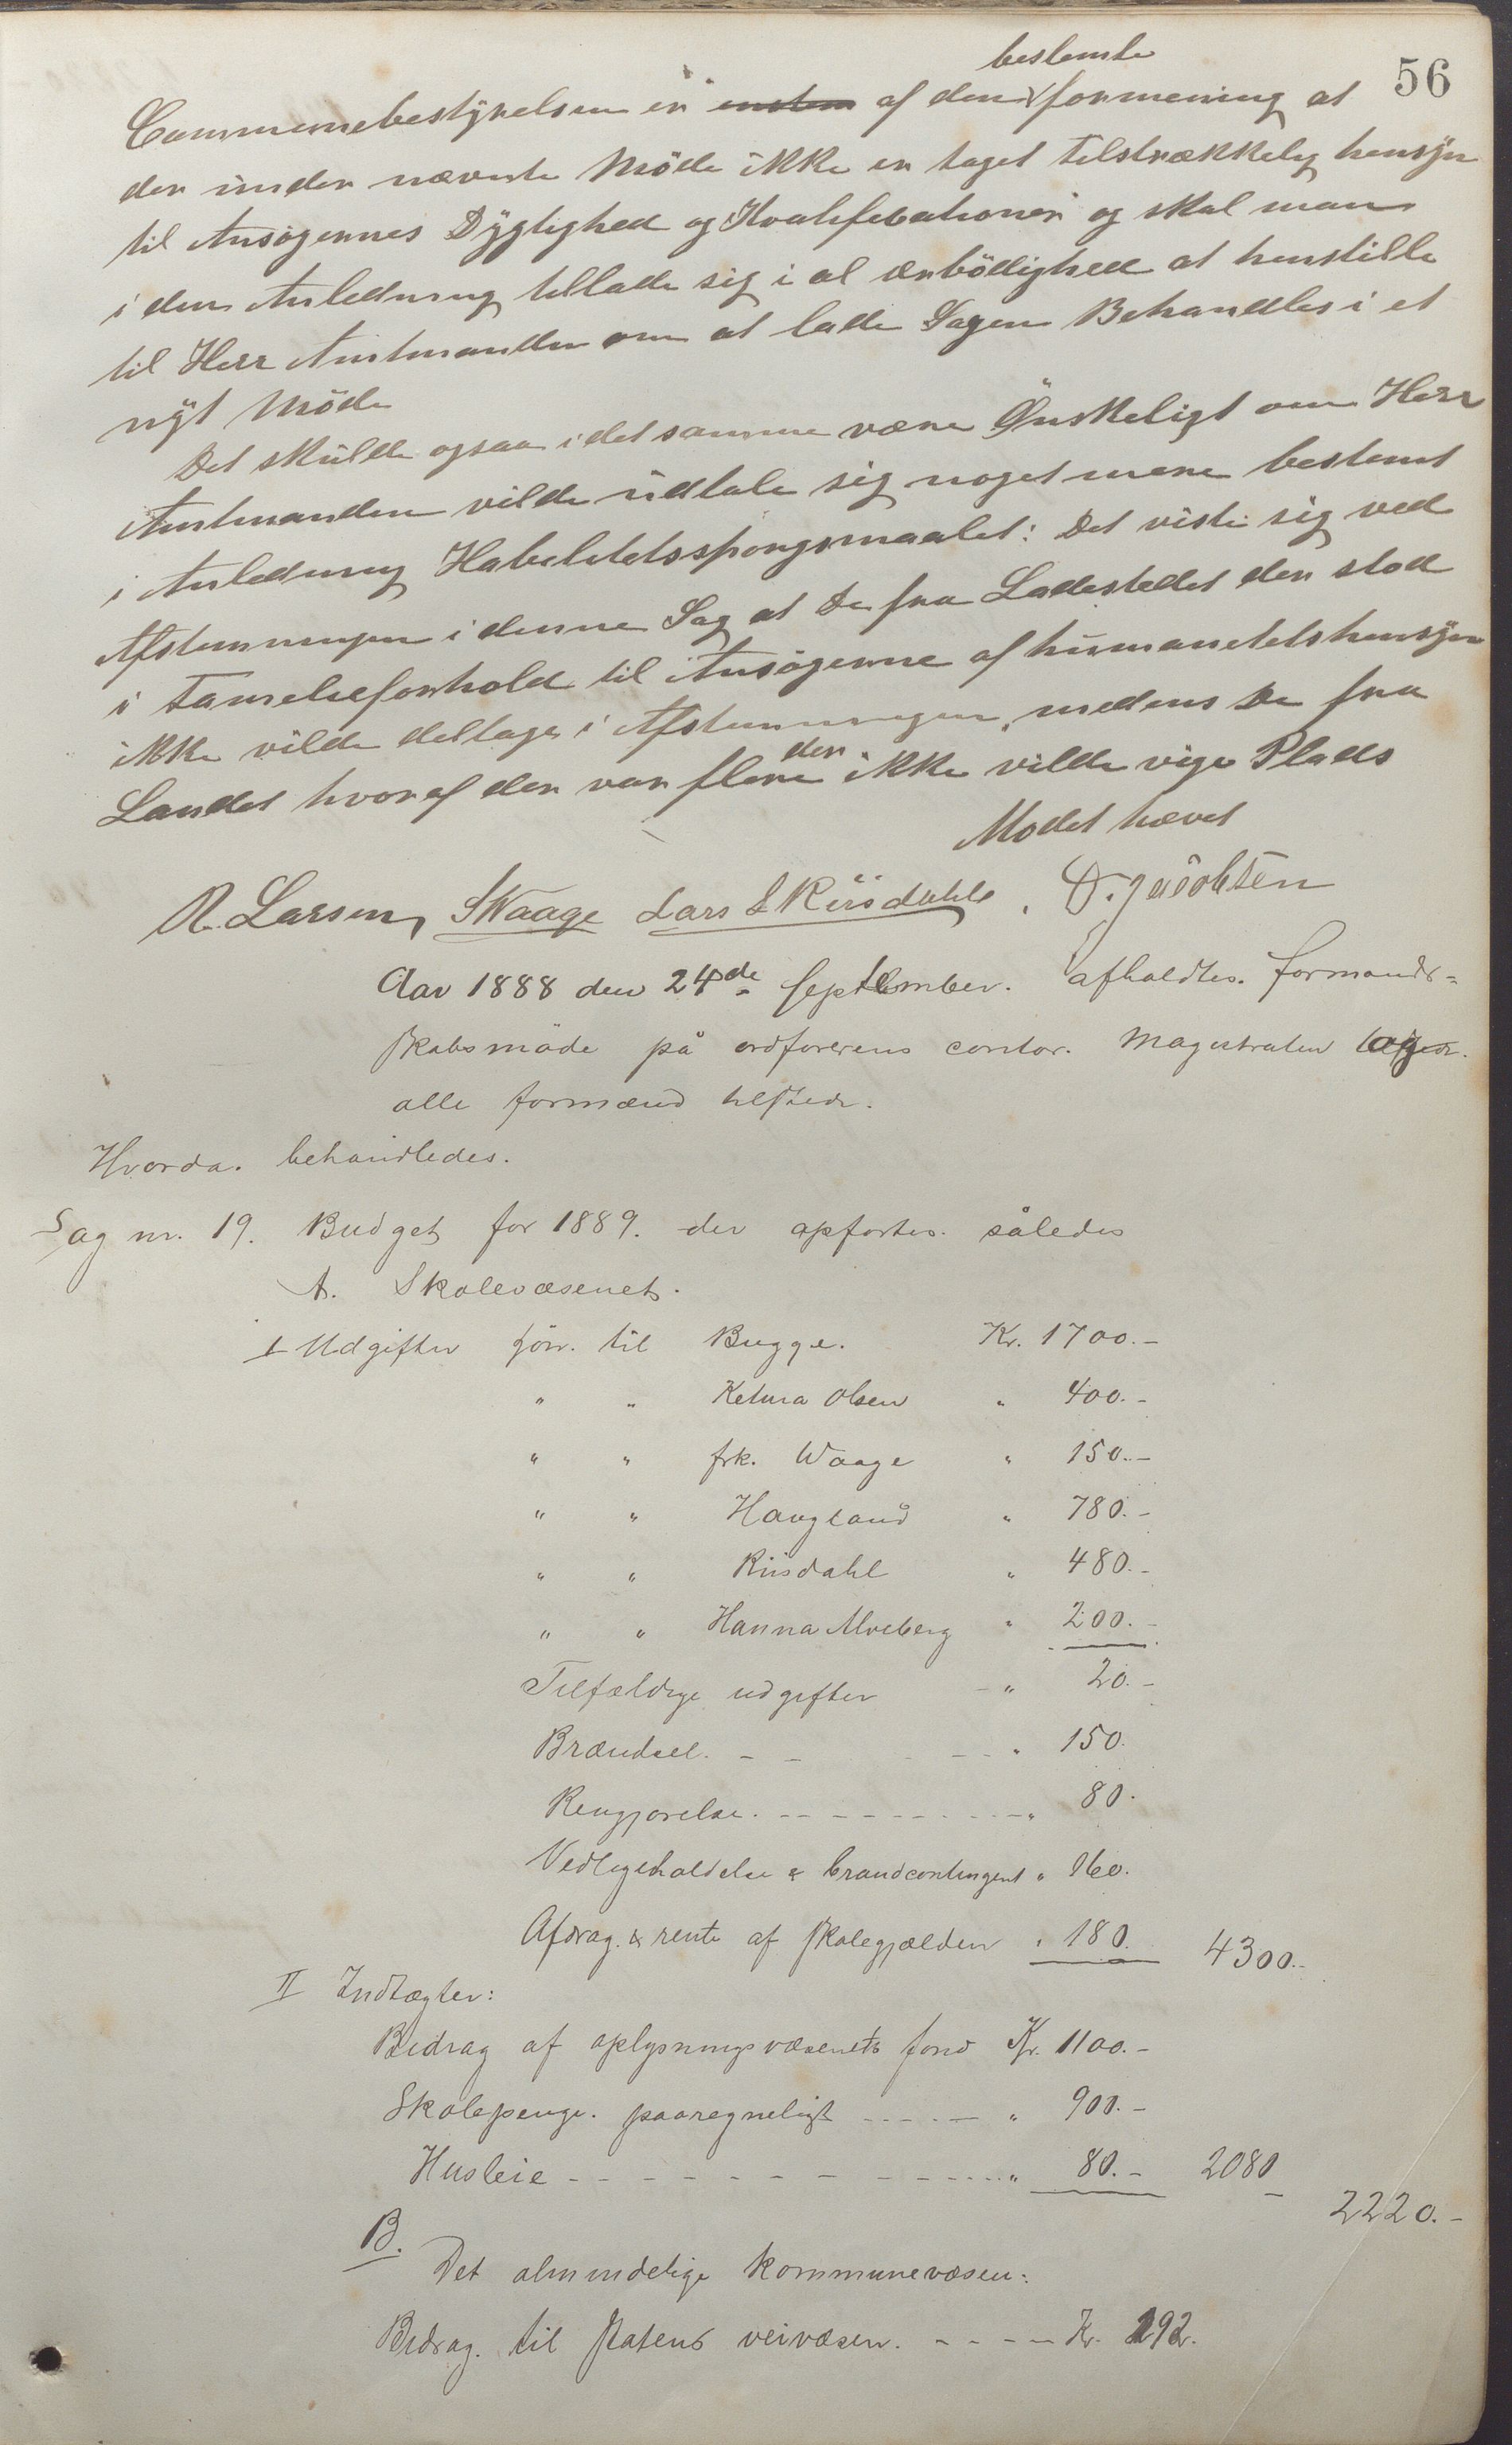 56
bestemte
Communebestyrelsen er ensten af den formening at
der under nævnte Möde ikke er taget tilstrækkelig hensyn
til Ansögernes Dygtighed og Kvalifikationer og skal man
i den Anledning tillade sig i al ærbödighed at henstille
til Herr Amtmanden om at lade Sagen Behandles i et
nyt Möde
Det skulde ogsaa i det samme være Önskeligt om Herr
Amtmanden vilde udtale sig noget mere bestemt
i Anledning Habilitetsspörgsmaalet: Det viste sig ved
Afstemningen i denne Sag at De fra Ladestedet der stod
i Familieforhold til Ansögerne af humanitetshensyn
ikke vilde deltage i Afstemningen, medens De fra
Landet hvoraf der var flere der ikke vilde vige Plads
Mödet hævet
R. Larsen, SWaage Lars L Riisdahl. D. Jacobsen
Aar 1888 den 24de September. afholdtes. formand-
skabsmöde på ordförerens contor. Magistraten og
alle formænd tilstede.
Hvorda. behandledes.
Sag nr. 19. Budget for 1889. der opförtes. således
A. Skolevæsenet.
I Udgifter Lön. til Bugge. Kr. 1700.-
" " Ketura Olsen " 400.-
" " frk. Waage " 150.-
" " Haugland " 780.-
" " Riisdahl " 480.-
" " Hanna Alveberg " 200.-
Tilfældige udgifter - " 20.-
Brændsel. - - - - " 150.
Rengjörelse. - - - - - - - - - " 80.
Vedligeholdelse & brandcontingent " 160.
Afdrag. & rente af skolegjælden " 180. 4300.-
II Indtægter:
Bidrag af oplysningsvæsenets fond Kr. 1100.-
Skolepenge. paaregneligt - - - - - " 900.-
Husleie - - - - - - - - - - - - " 80.- 2080
2220.-
B.
Det almindelige kommunevæsen:
Bidrag. til Statens veivæsen. - - - - Kr. 292.